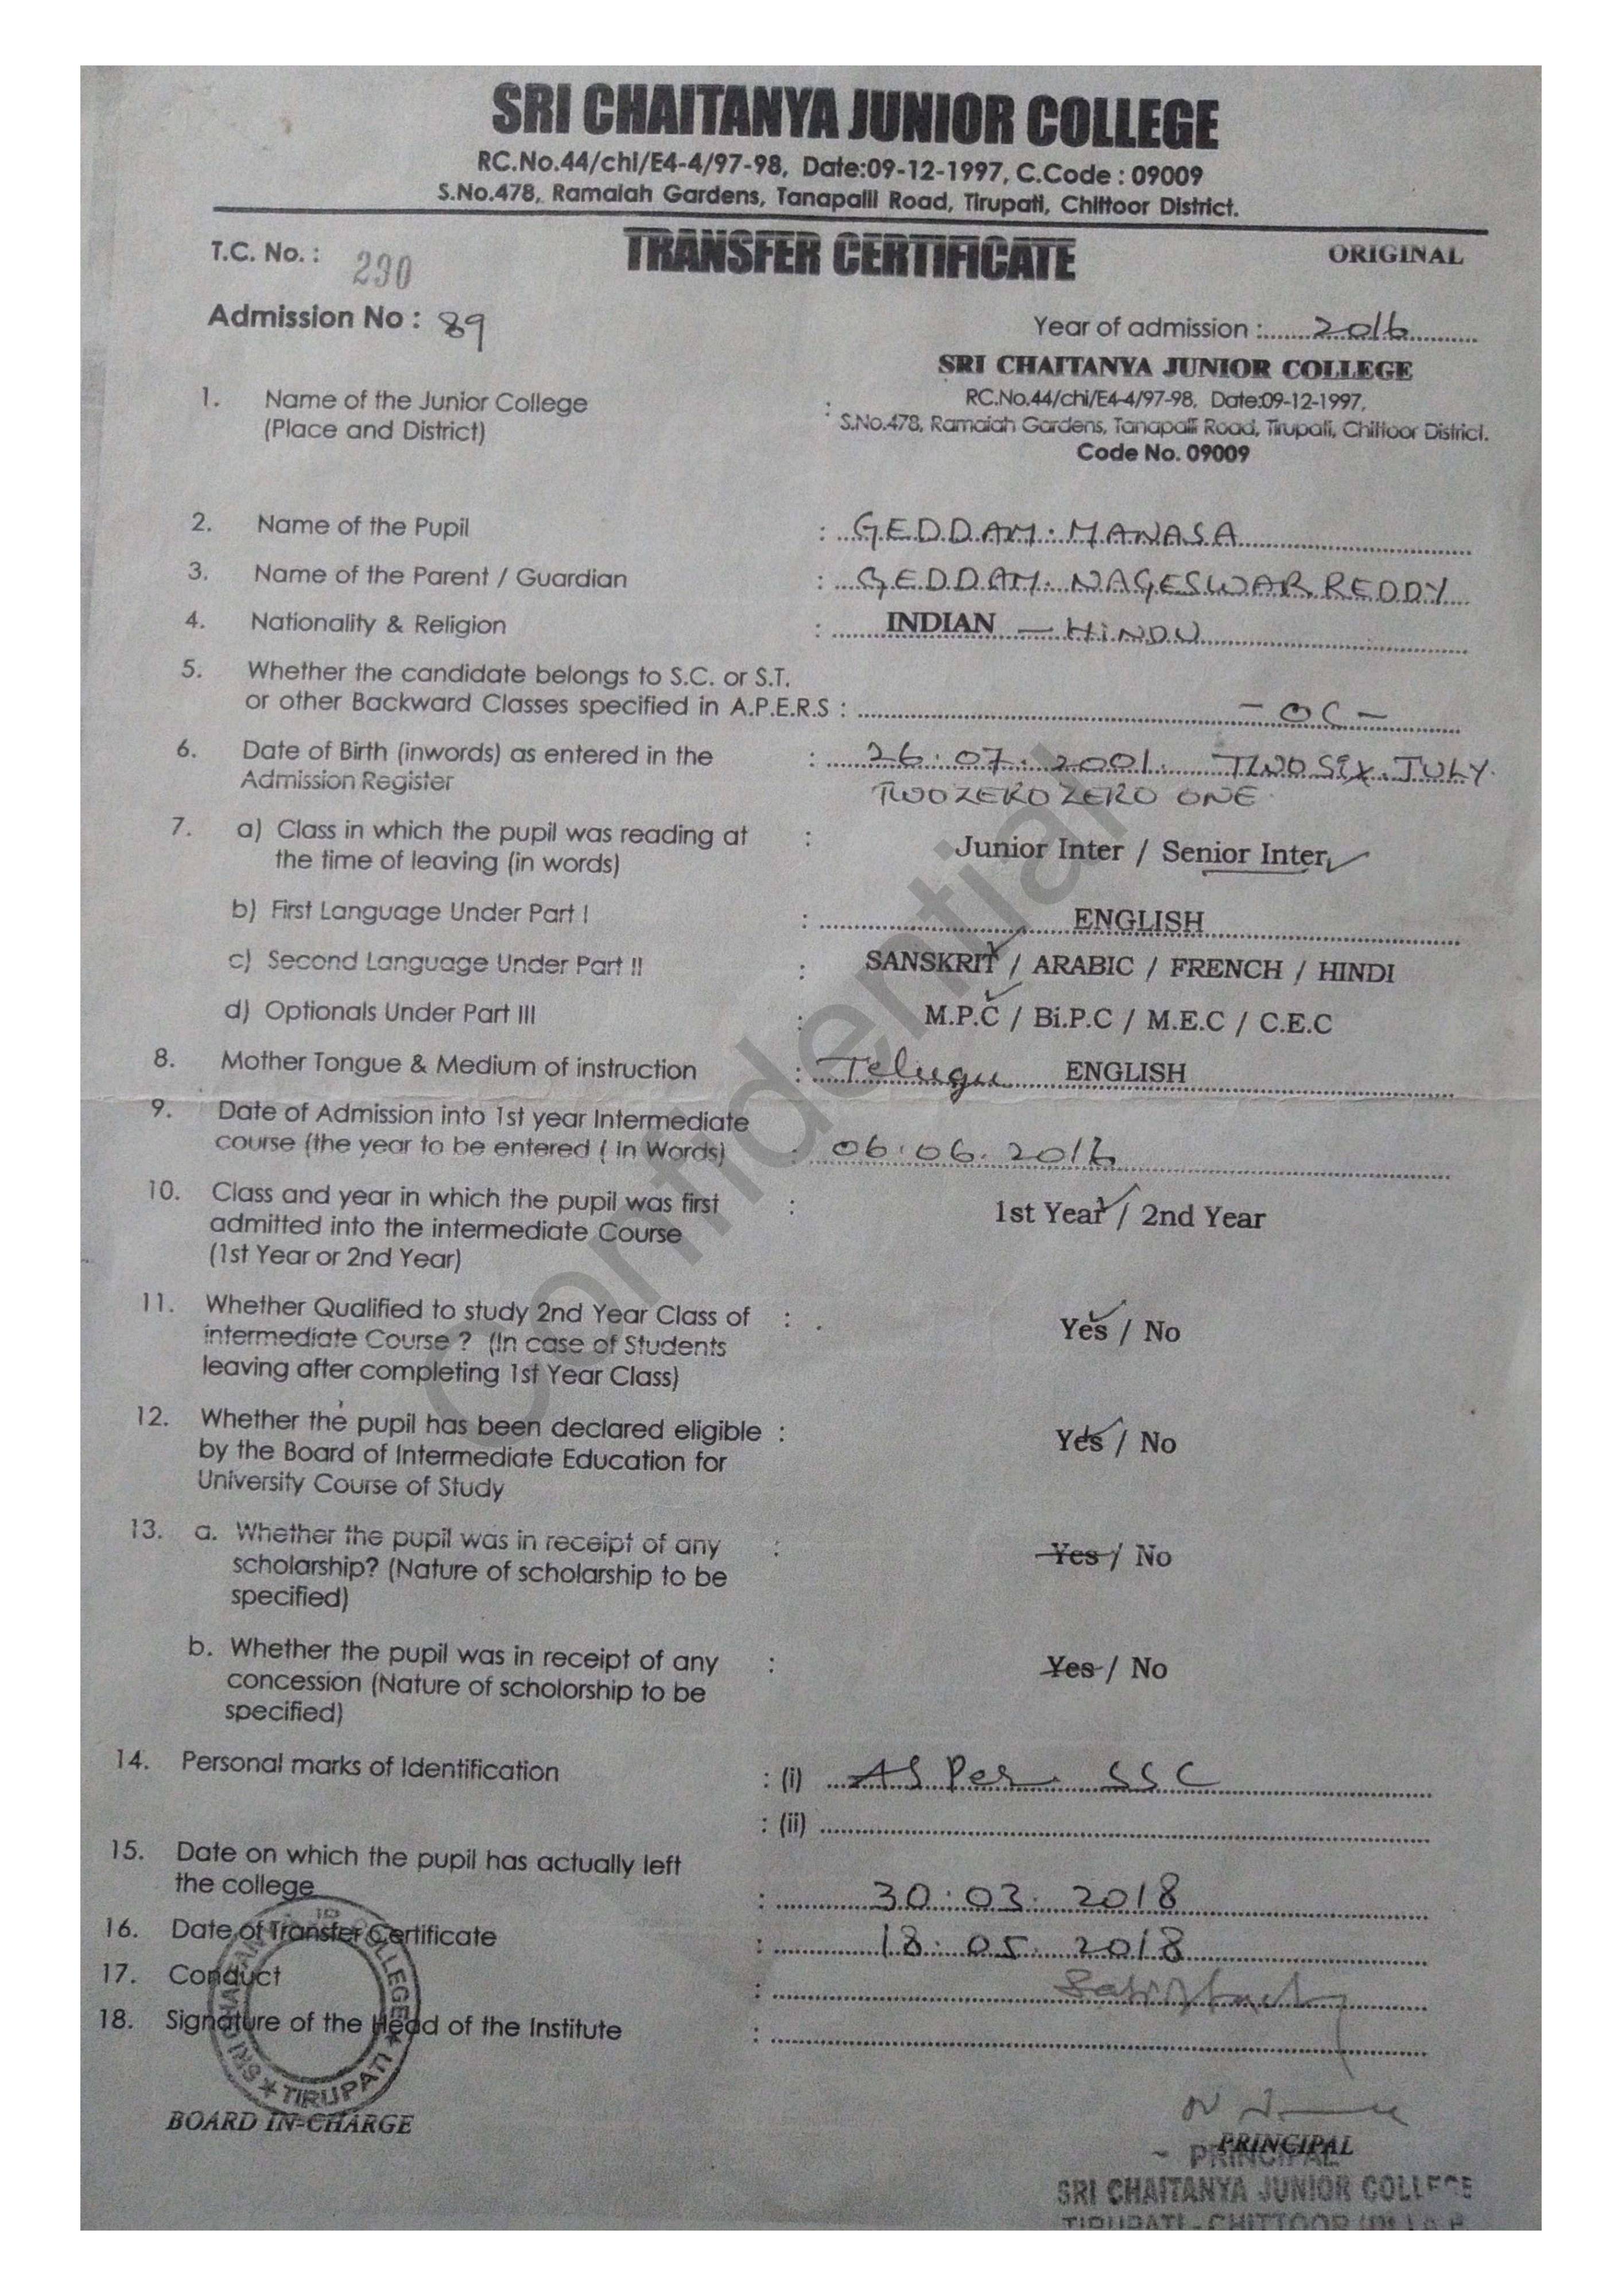 SRI CHAITANYA JUNIOR COLLEGE
RC.No.44/chi/E4-4/97-98, Date:09-12-1997, C.Code : 09009
S.No.478, Ramaiah Gardens, Tanapalli Road, Tirupati, Chittoor District.
T.C. No. : 290 TRANSFER CERTIFICATE ORIGINAL
Admission No : 89 Year of admission : 2016
SRI CHAITANYA JUNIOR COLLEGE
1. Name of the Junior College : RC.No.44/chi/E4-4/97-98, Date:09-12-1997,
(Place and District) S.No.478, Ramaiah Gardens, Tanapalli Road, Tirupati, Chittoor District.
Code No. 09009
2. Name of the Pupil : GEDDAM. MANASA
3. Name of the Parent / Guardian : GEDDAM. NAGESWAR REDDY
4. Nationality & Religion : INDIAN - HINDU
5. Whether the candidate belongs to S.C. or S.T.
or other Backward Classes specified in A.P.E.R.S : - OC -
6. Date of Birth (inwords) as entered in the : 26.07.2001. TWO SIX. JULY.
Admission Register TWO ZERO ZERO ONE
7. a) Class in which the pupil was reading at : Junior Inter / Senior Inter
the time of leaving (in words)
b) First Language Under Part I : ENGLISH
c) Second Language Under Part II : SANSKRIT / ARABIC / FRENCH / HINDI
d) Optionals Under Part III : M.P.C / Bi.P.C / M.E.C / C.E.C
8. Mother Tongue & Medium of instruction : Telugu ENGLISH
9. Date of Admission into 1st year Intermediate
course (the year to be entered ( In Words) : 06.06.2016
10. Class and year in which the pupil was first : 1st Year / 2nd Year
admitted into the intermediate Course
(1st Year or 2nd Year)
11. Whether Qualified to study 2nd Year Class of : Yes / No
intermediate Course ? (In case of Students
leaving after completing 1st Year Class)
12. Whether the pupil has been declared eligible : Yes / No
by the Board of Intermediate Education for
University Course of Study
13. a. Whether the pupil was in receipt of any : Yes / No
scholarship? (Nature of scholarship to be
specified)
b. Whether the pupil was in receipt of any : Yes / No
concession (Nature of scholorship to be
specified)
14. Personal marks of Identification : (i) AS Per SSC
: (ii)
15. Date on which the pupil has actually left
the college : 30.03.2018
16. Date of Transfer Certificate : 18.05.2018
17. Conduct : Satisfactory
18. Signature of the Head of the Institute :
TIRUPATI
BOARD IN-CHARGE PRINCIPAL
PRINCIPAL
SRI CHAITANYA JUNIOR COLLEGE
TIRUPATI - CHITTOOR
Confidential